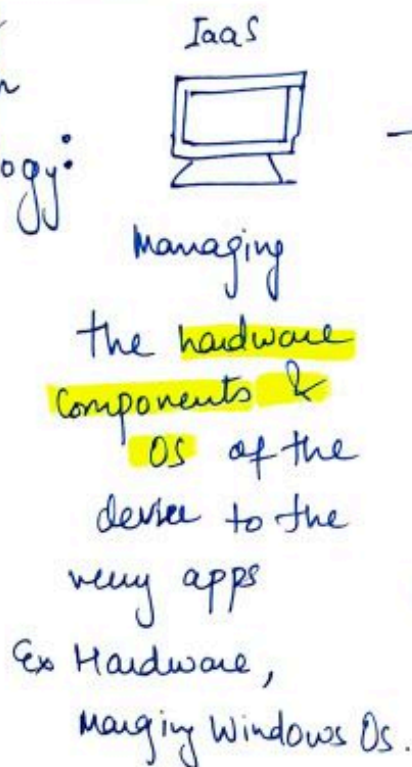 IaaS
ogy:
Managing
the hardware
Components &
OS of the
device to the
very apps
Ex Hardware,
Marging Windows Os.